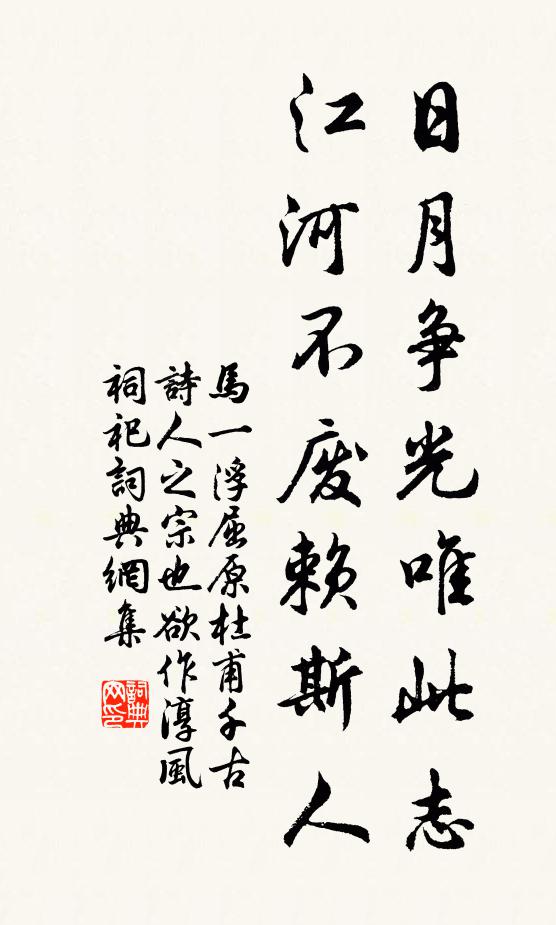 日月争光唯此志
江河不废賴斯人
馬一浮屈原杜甫千古
詩人之宗也欲作淳風
祠祀詞典網集
詞典
网印